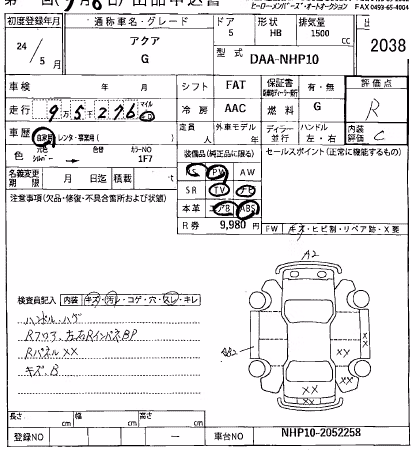 ヒーローメンバーズ・オートオークション FAX0493-65-4004
初度登録年月 通称車名・グレード ドア 形状 排気量
24/5月 アクア G 5 HB 1500 cc 2038
型式 DAA-NHP10
車検 年 月 シフト FAT 保証書 有・無 評価点
走行 9万5千276 マイル km 冷房 AAC 燃料 G R
車歴 自家用・レンタ・事業用( ) 定員 人 外車モデル 年 ディラー・並行 ハンドル 左・右 内装評価 C
色 元色 シルバー 色替 カラーNO 1F7 装備品(純正品に限る) セールスポイント(正常に機能するもの)
名義変更期限 月 日迄 積載 t PS PW AW
注意事項(欠品・修復・不具合箇所および状状) SR TV ナビ
本革 エアB ABS
R券 9,980円 FW キズ・ヒビ割・リペア跡・X要
A2
検査員記入 内装 キズ・汚レ・コゲ・穴・スレ・キレ
ハンドル・ハゲ
Rフロア、左右RインパネBP
Rパネル××
キズB
XX
XY
XX
長さ cm 幅 cm 高さ cm
登録NO — 車台NO NHP10-2052258